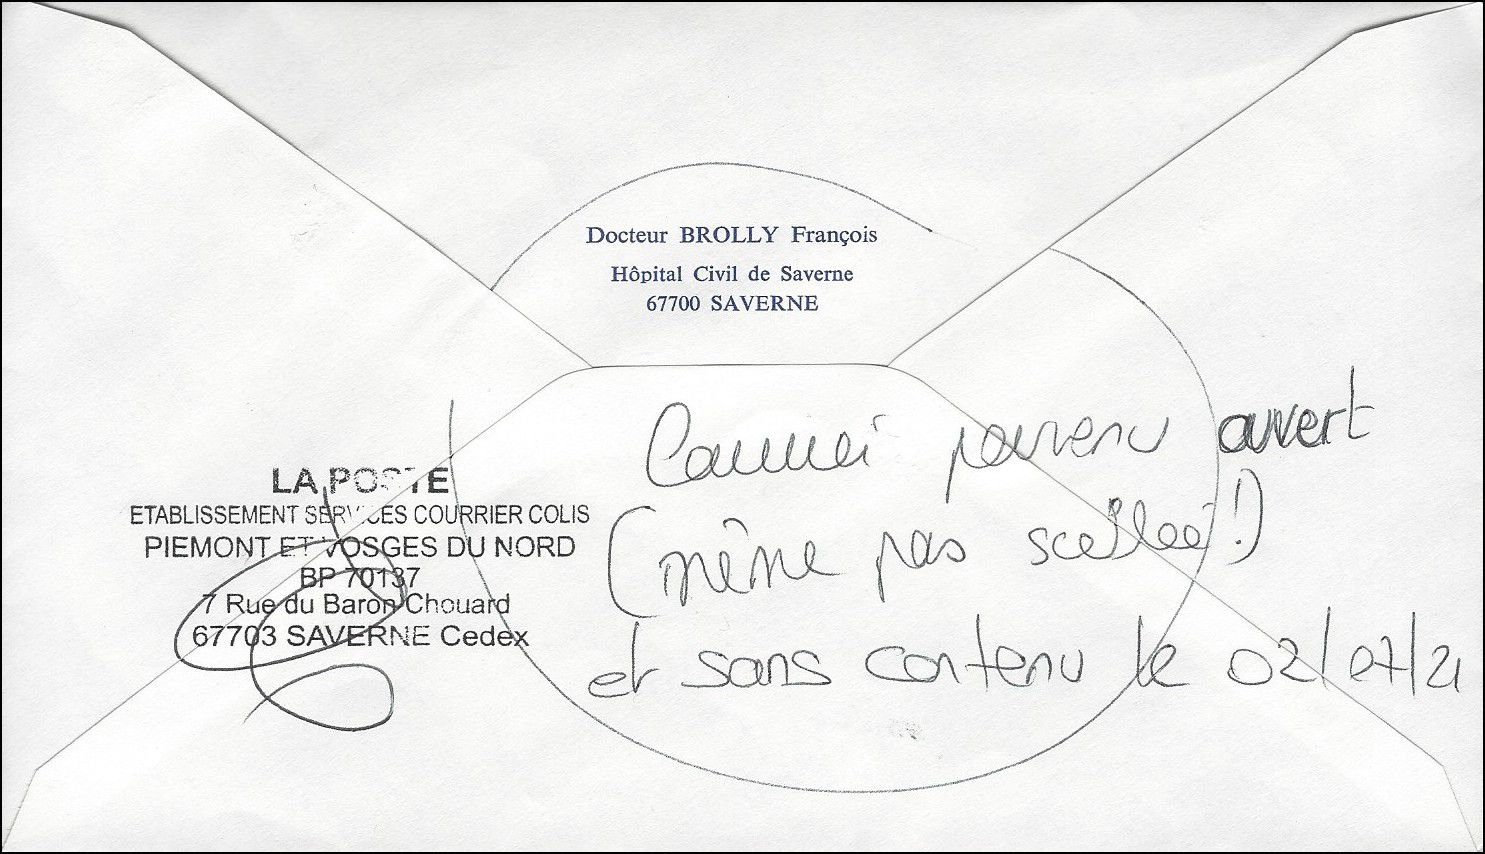 Docteur BROLLY François
Hôpital Civil de Saverne
67700 SAVERNE
LA POSTE
ETABLISSEMENT SERVICES COURRIER COLIS
PIEMONT ET VOSGES DU NORD
BP 70137
7 Rue du Baron Chouard
67703 SAVERNE Cedex
Courrier parvenu ouvert
(même pas scellée !)
et sans contenu le 02/07/21